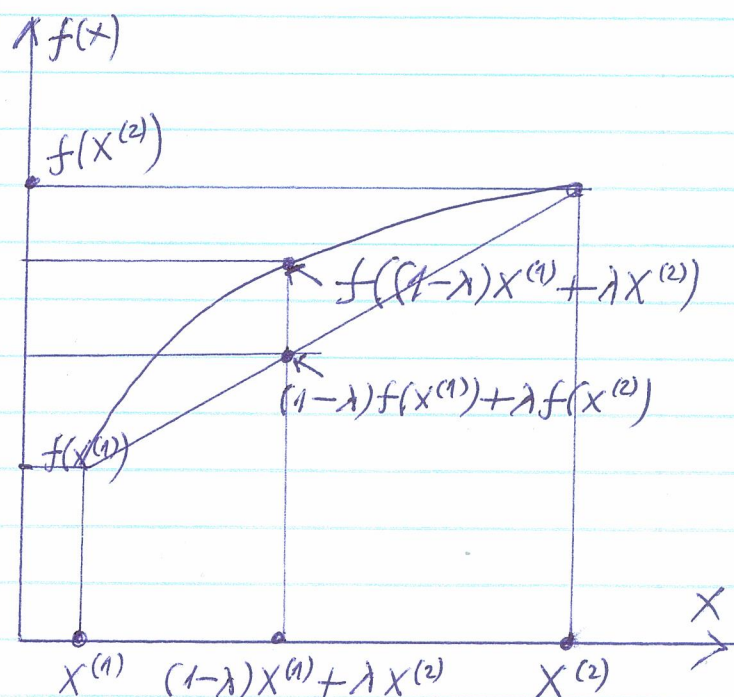 f(x)
f(X⁽²⁾)
f((1-λ)X⁽¹⁾+λX⁽²⁾)
(1-λ)f(X⁽¹⁾)+λf(X⁽²⁾)
f(X⁽¹⁾)
X
X⁽¹⁾ (1-λ)X⁽¹⁾+λX⁽²⁾ X⁽²⁾